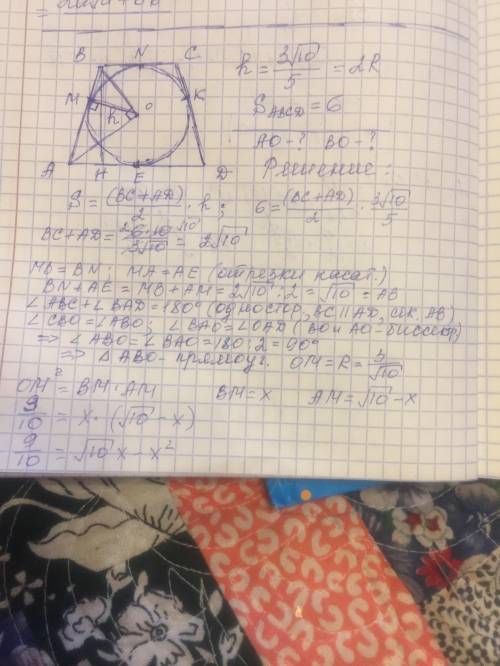 B N C
M K
O
h
A H E D
h = 3√10/5 = 2R
S_ABCD = 6
AO - ? BO - ?
Решение:
S = (BC+AD)/2 · h; 6 = (BC+AD)/2 · 3√10/5
BC+AD = 2·6·10/3√10 = 2√10
MB = BN; MA = AE (отрезки касат.)
BN + AE = MB + AM = 2√10 : 2 = √10 = AB
∠ABC + ∠BAD = 180° (одностор, BC ∥ AD, сек. AB)
∠CBO = ∠ABO; ∠BAO = ∠OAD (BO и AO - биссектр)
⇒ ∠ABO = ∠BAO = 180 : 2 = 90°
⇒ △ABO - прямоуг. OM = R = 3/√10
OM² = BM · AM BM = x AM = √10 - x
9/10 = x · (√10 - x)
9/10 = √10 x - x²